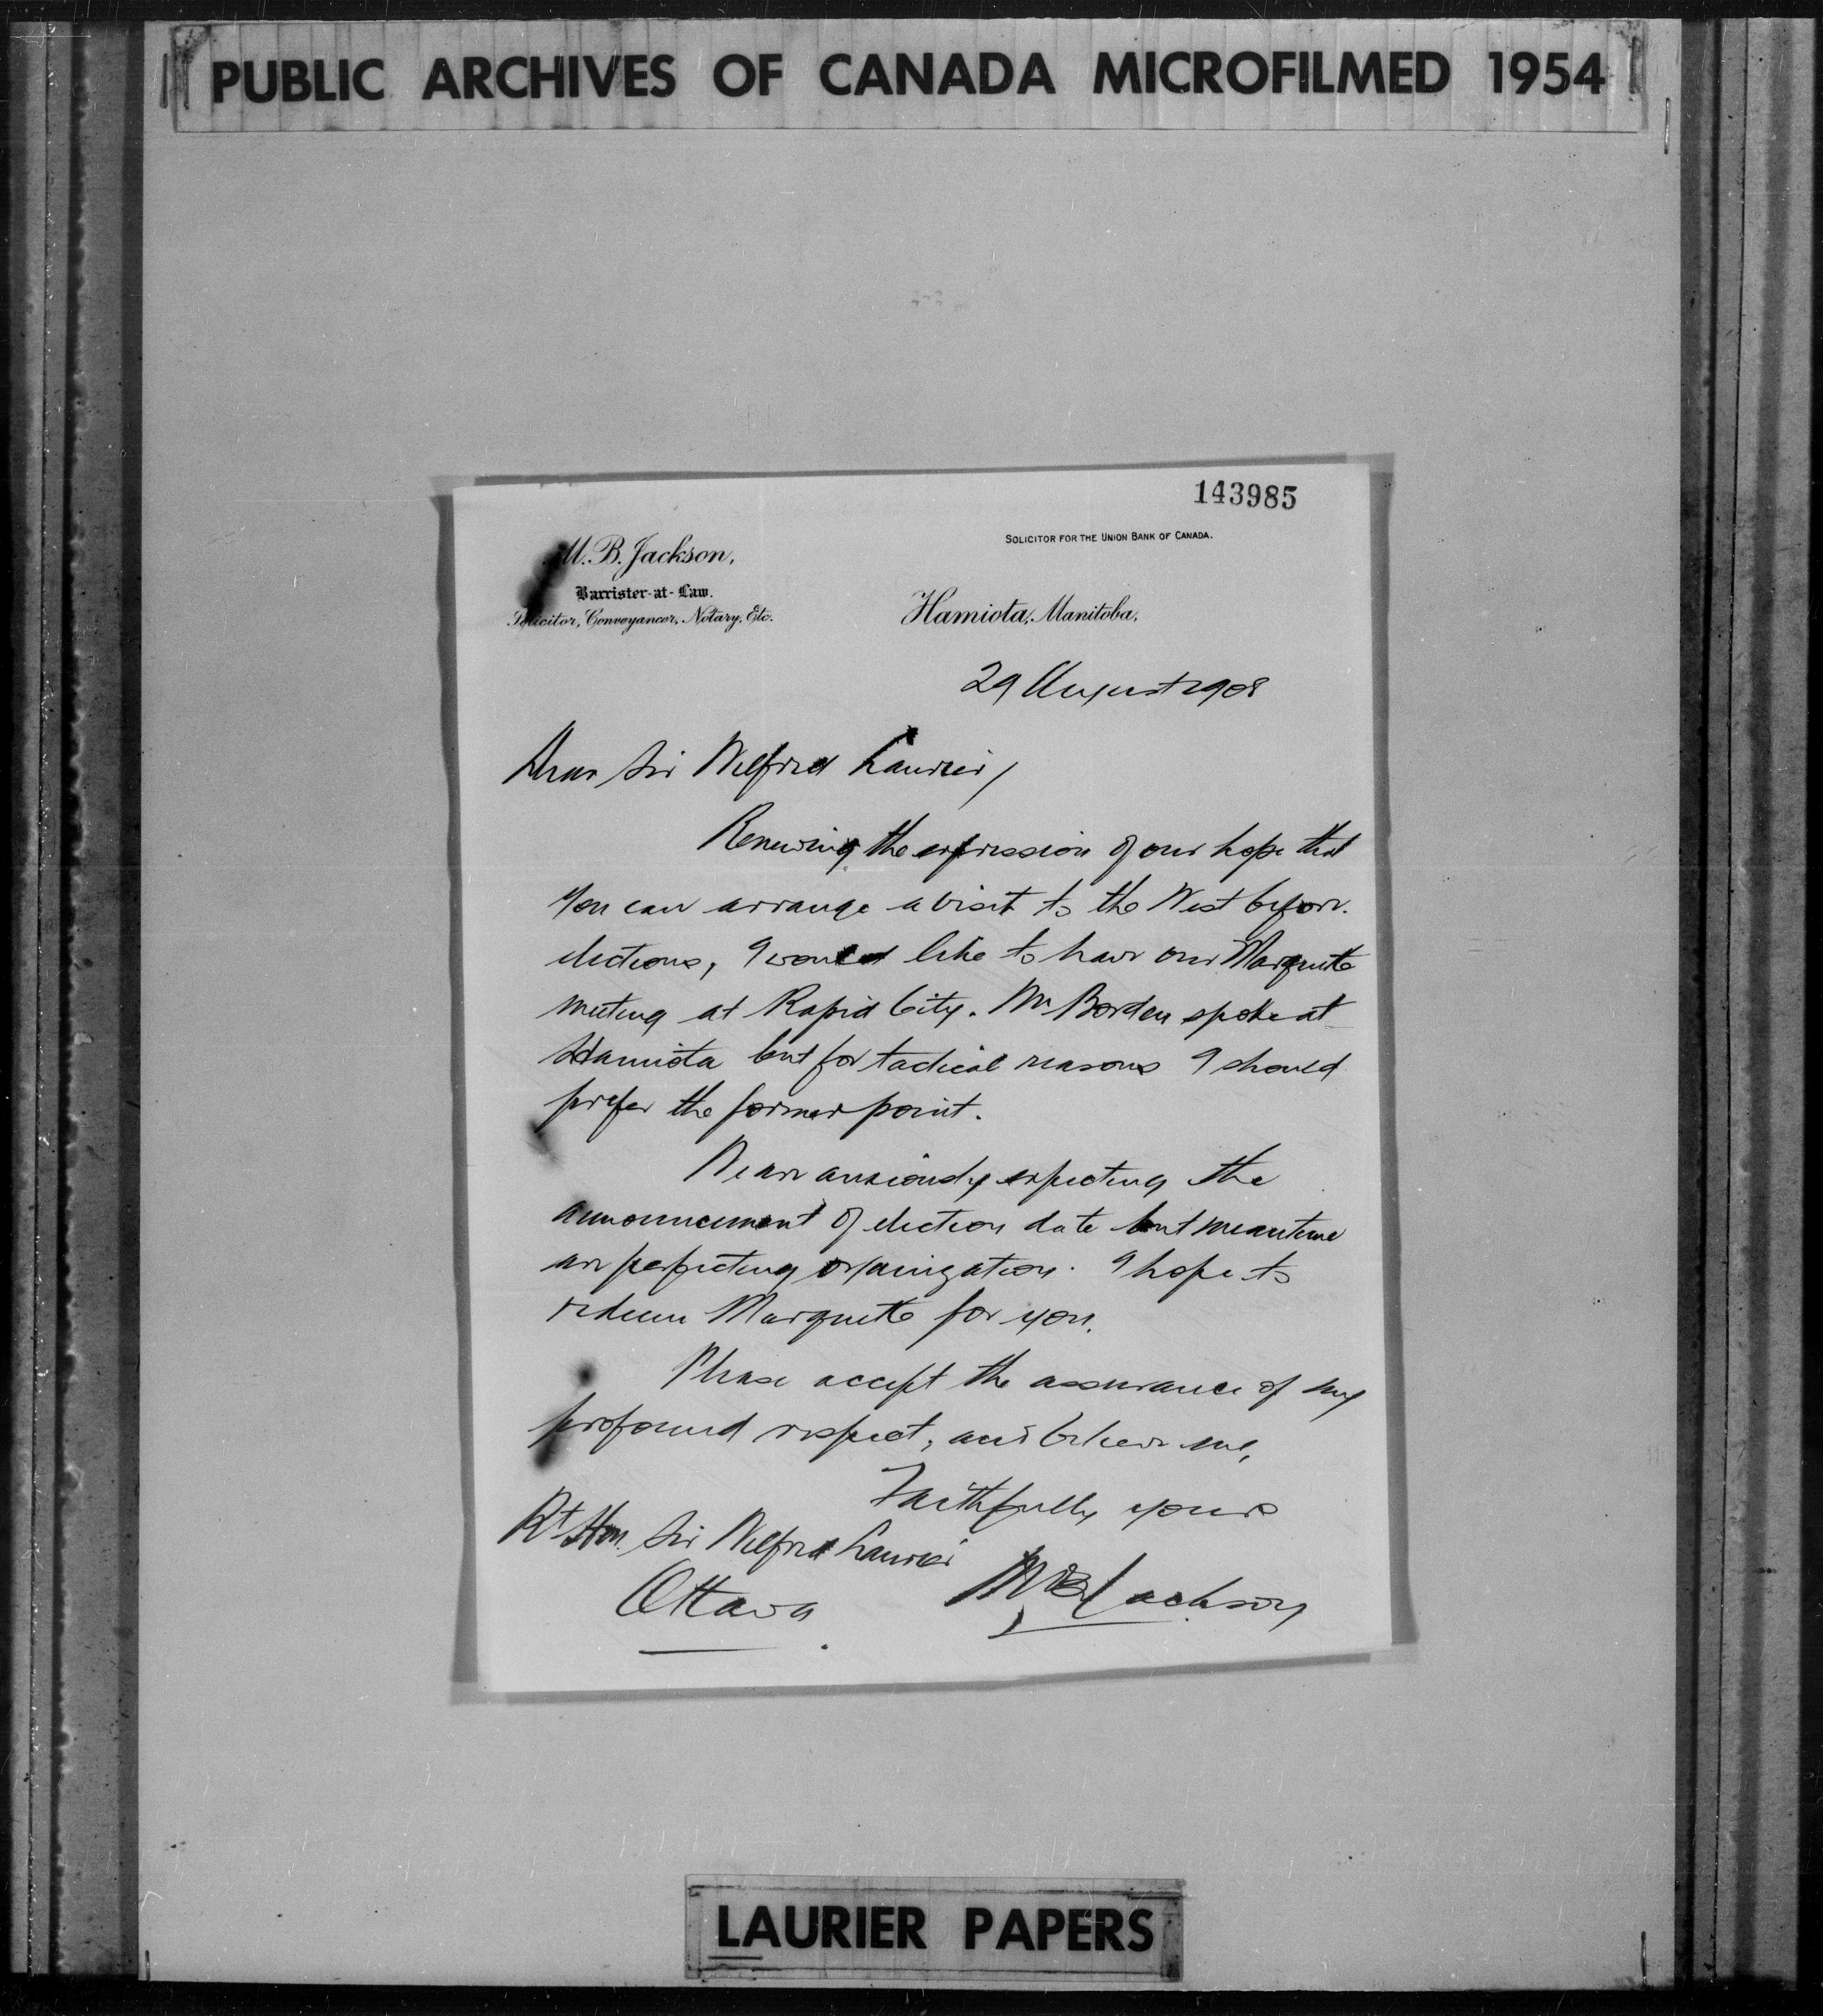 PUBLIC ARCHIVES OF CANADA MICROFILMED 1954
143985
M. B. Jackson,
Barrister-at-Law.
Solicitor, Conveyancer, Notary, Etc.
SOLICITOR FOR THE UNION BANK OF CANADA.
Hamiota, Manitoba,
29 August 1908
Dear Sir Wilfrid Laurier,
Renewing the expression of our hope that
you can arrange a visit to the West before
elections, I would like to have our Marquette
meeting at Rapid City. Mr Borden spoke at
Hamiota but for tactical reasons I should
prefer the former point.
We are anxiously expecting the
announcement of election date but meantime
are perfecting organization. I hope to
redeem Marquette for you.
Please accept the assurance of my
profound respect, and believe me,
Faithfully yours
Rt Hon. Sir Wilfrid Laurier
MB Jackson
Ottawa
LAURIER PAPERS